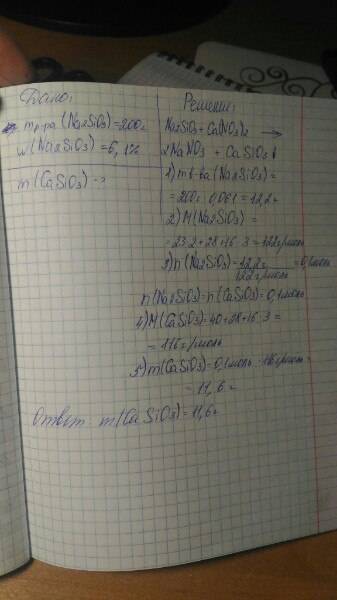 Дано:
m р-ра (Na2SiO3)=200г
w(Na2SiO3)=6,1%
m(CaSiO3)-?
Решение:
Na2SiO3+Ca(NO3)2 →
2NaNO3 + CaSiO3↓
1) m в-ва (Na2SiO3)=
=200г·0,061=12,2г
2) M(Na2SiO3)=
=23·2+28+16·3=122г/моль
3) n(Na2SiO3)=12,2г/122г/моль=0,1моль
n(Na2SiO3)=n(CaSiO3)=0,1моль
4) M(CaSiO3)=40+28+16·3=
=116г/моль
5) m(CaSiO3)=0,1моль·116г/моль=
=11,6г
Ответ: m(CaSiO3)=11,6г